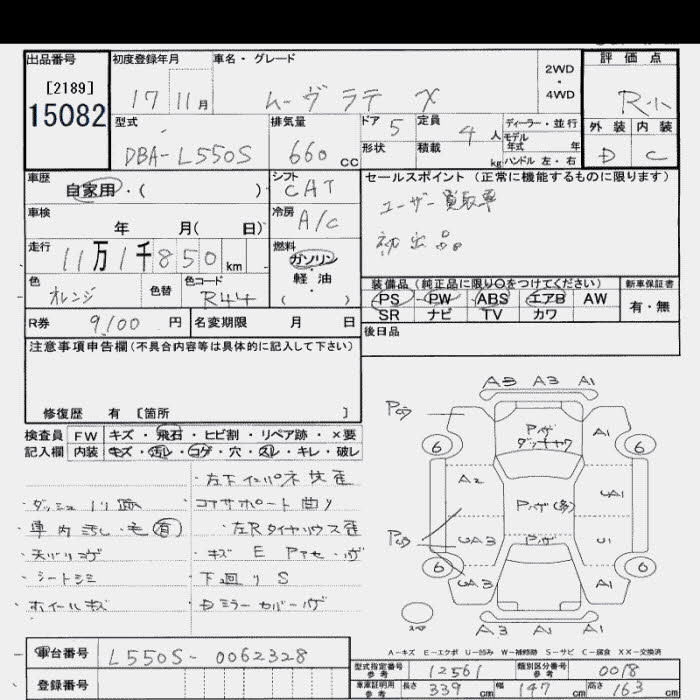 出品番号
[2189]
15082
初度登録年月
17 11月
車名・グレード
ムーヴ ラテ X
2WD
・
4WD
評価点
R小
外装 内装
D C
型式
DBA-L550S
排気量
660 cc
ドア 5
定員 4 人
形状
積載 kg
ディーラー・並行
モデル年式 年
ハンドル 左・右
車歴
自家用・( )
シフト
CAT
車検
年 月( 日)
冷房
A/C
走行
11万1千850 km
燃料
ガソリン
・
軽油
( )
色
オレンジ
色替
色コード
R44
セールスポイント(正常に機能するものに限ります)
ユーザー買取車
初出品
装備品(純正品に限り○をつけてください)
PS PW ABS エアB AW
SR ナビ TV カワ
新車保証書
有・無
R券 9,100 円
名変期限 月 日
後日品
注意事項申告欄(不具合内容等は具体的に記入して下さい)
修復歴 有 [箇所 ]
検査員
記入欄
FW キズ・飛石・ヒビ割・リペア跡・×要
内装 キズ・汚レ・コゲ・穴・スレ・キレ・破レ
・左下インパネ 歪
・ダッシュ ノリ跡
・コアサポート曲り
・車内汚レ・毛(有)
・左Rタイヤハウス歪
・天バリコゲ
・キズ E Pアセ・ハゲ
・シートシミ
・下廻り S
・ホイールキズ
・Dミラーカバーハゲ
A3 A3 A1
Pハゲ
ダッチャク
A1
6 6
A2
Pハゲ(多)
UA1
UA3
Pハゲ
U1
6 6
UA3
A1
スペア
A3 A1 A1
A-キズ E-エクボ U-凹み W-補修跡 S-サビ C-腐食 XX-交換済
車台番号
L550S-0062328
登録番号
型式指定番号 参考
12561
類別区分番号 参考
0018
車庫証明用 参考
長さ 339 cm
幅 147 cm
高さ 163 cm